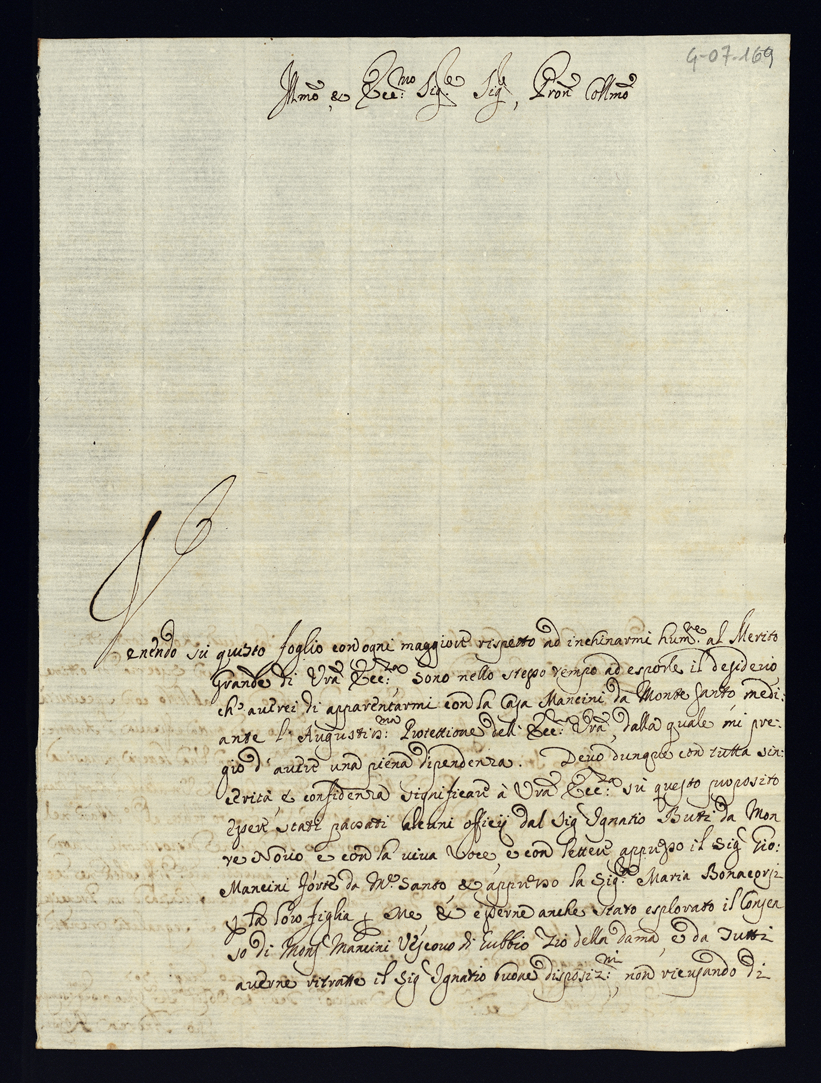 G-07-169
Illmo, & Ecc:mo Sig.re Sig.re, Pron Collmo
Venendo sù questo foglio con ogni maggiore rispetto ad inchinarmi hum.te al Merito
Grande di Vrā Ecc:za Sono nello stesso tempo ad esporle il desiderio
ch'avrei di apparentarmi con la Casa Mancini da Monte Santo medi:
ante l'Augustis:ma Protettione dell'Ecc:za Vrā, dalla quale mi pre:
gio d'avere una piena dipendenza. Devo dunque con tutta sin:
cerità e confidenza significare à Vrā Ecc:za sù questo proposito
essere stati passati alcuni officij dal Sig.re Ignatio Buti da Mon
te Novo e con la viva Voce, e con lettere appresso il Sig.re Gio:
Mancini da M.te Santo & appresso la Sig.ra Maria Bonacorsi
p la loro figlia p Me & esserne anche stato esplorato il Consen
so di Mons.re Mancini Vescovo di Eubbio Zio della dama, e da Tutti
averne ritratte il Sig.re Ignatio buone disposiz:ni, non di